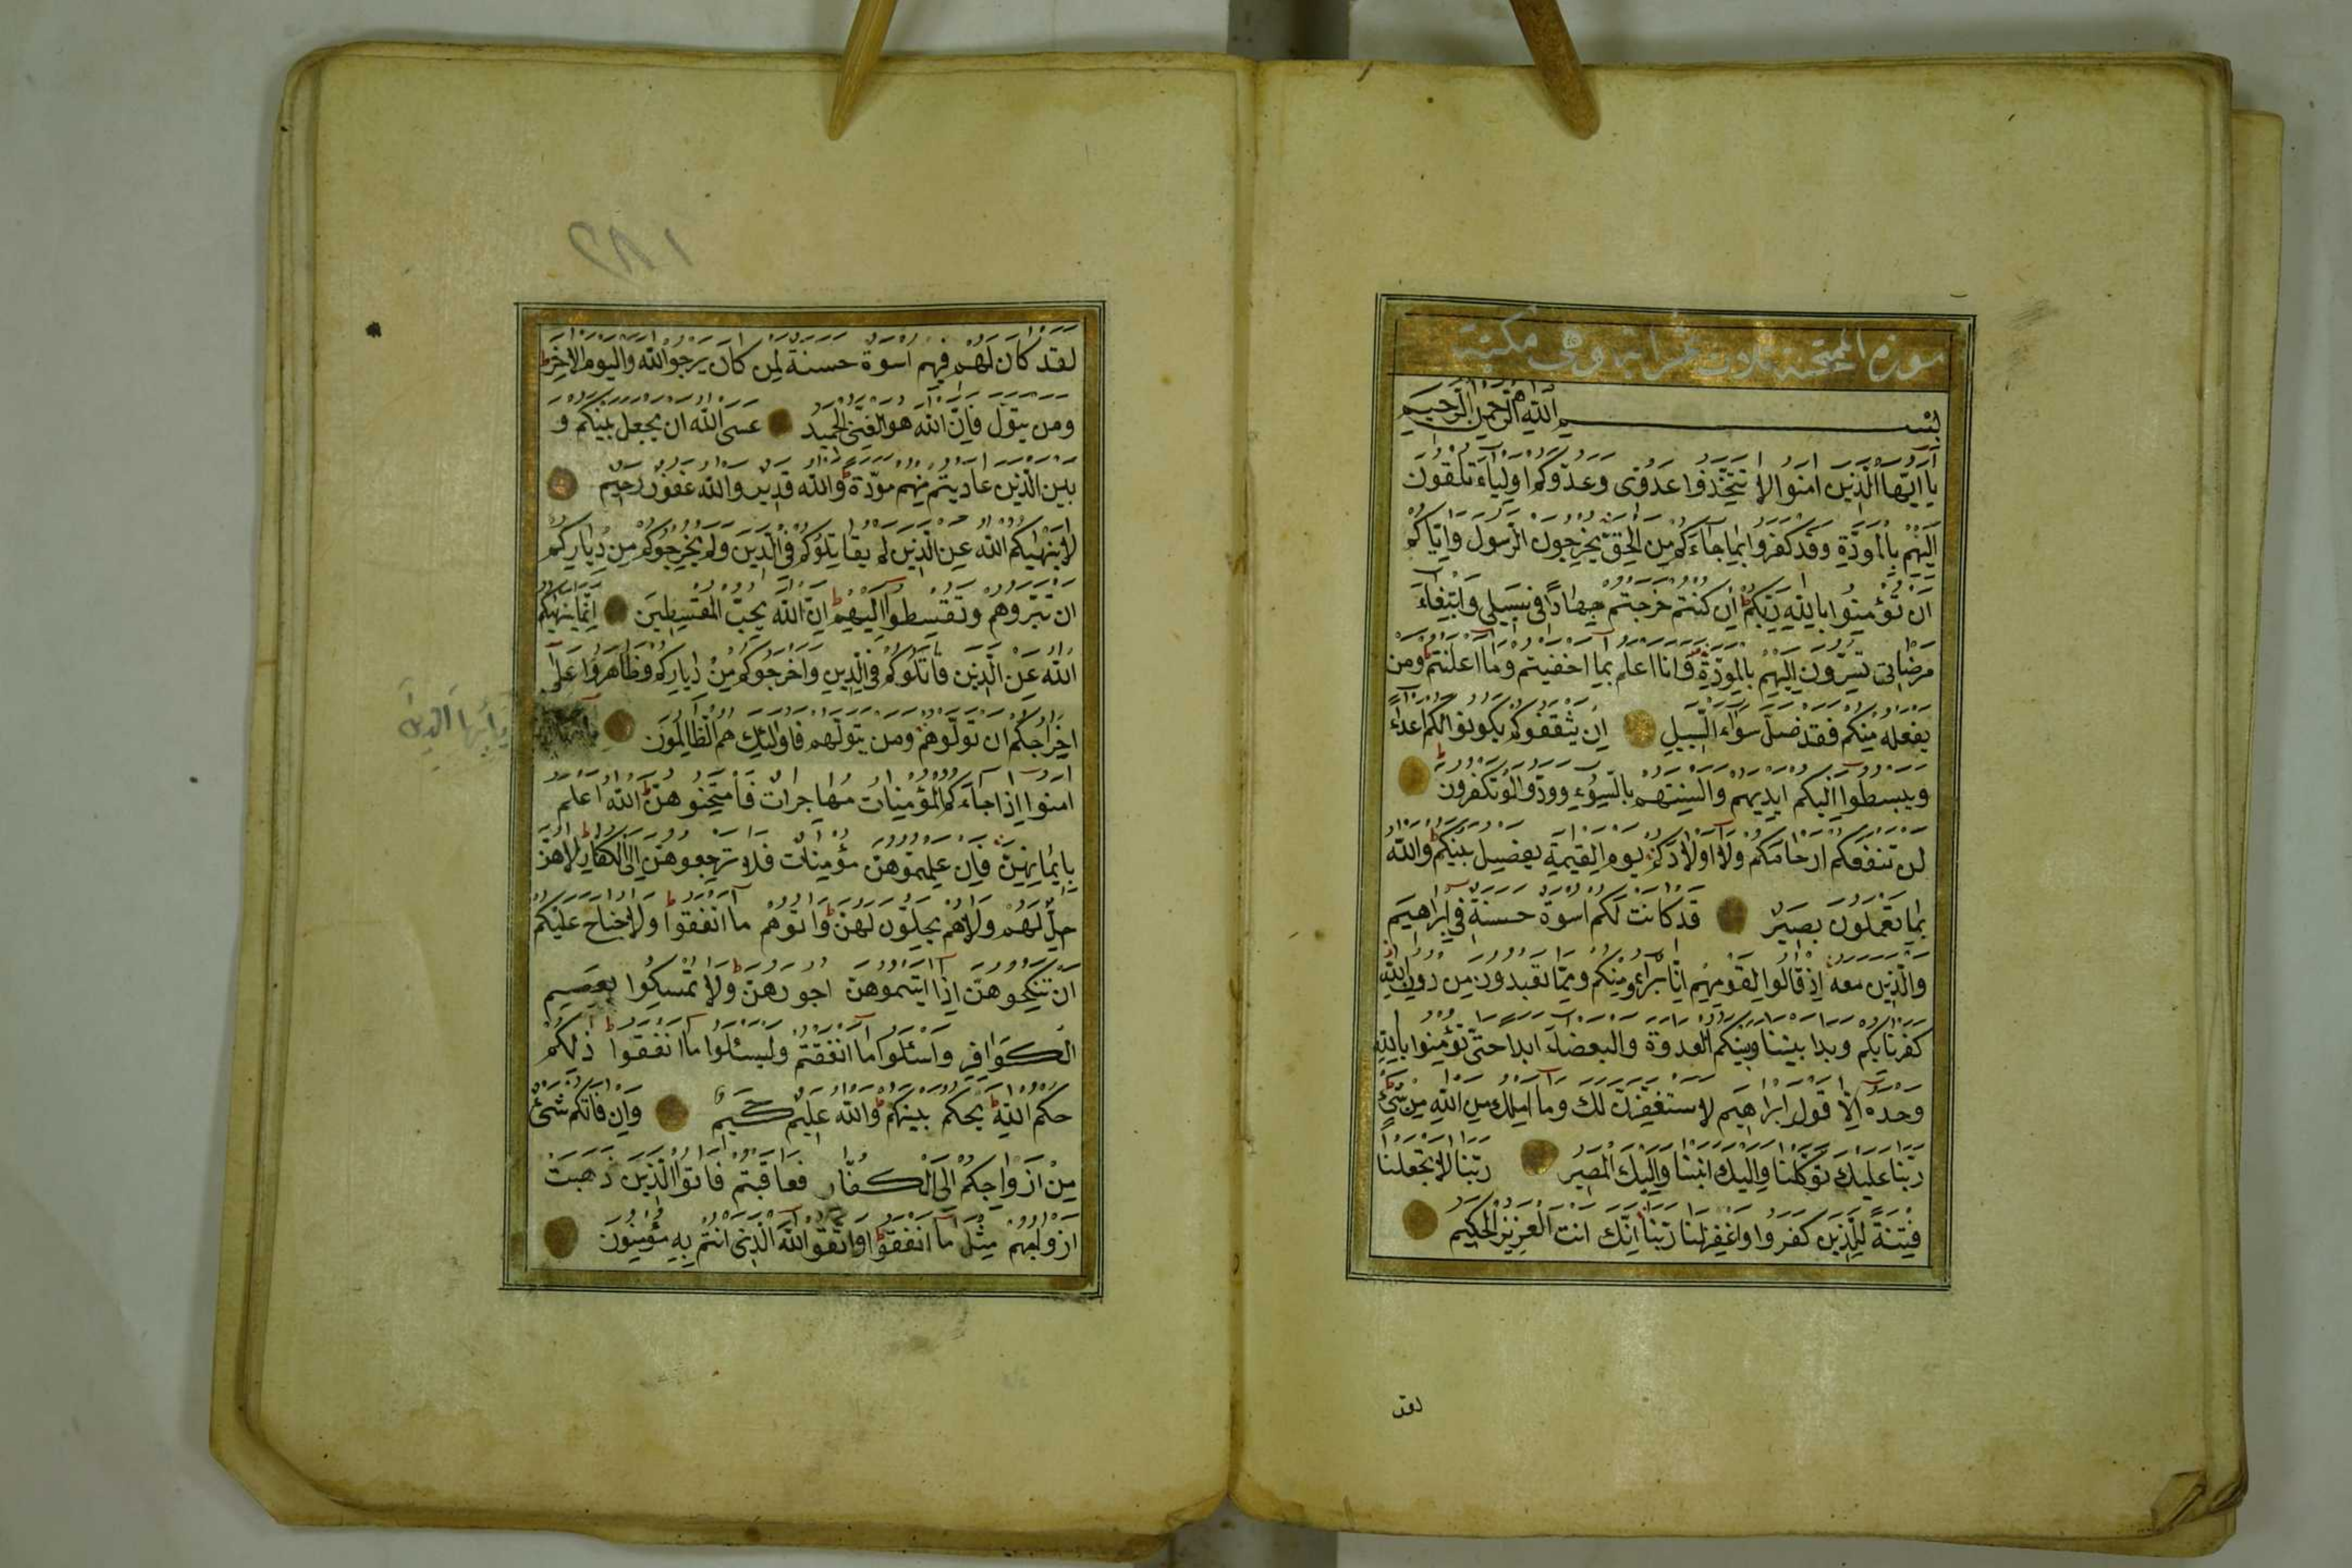 سورة الممتحنة ثلاث عشر اية وهي مكية
بسم الله الرحمن الرحيم
يا ايها الذين امنوا لا تتخذوا عدوى وعدوكم اولياء تلقون
اليهم بالمودة وقد كفروا بما جاءكم من الحق يخرجون الرسول واياكم
ان تؤمنوا بالله ربكم ان كنتم خرجتم جهادا في سبيلي وابتغاء
مرضاتى تسرون اليهم بالمودة وانا اعلم بما اخفيتم وما اعلنتم ومن
يفعله منكم فقد ضل سواء السبيل ان يثقفوكم يكونوا لكم اعداء
ويبسطوا اليكم ايديهم والسنتهم بالسوء وودوا لو تكفرون
لن تنفعكم ارحامكم ولا اولادكم يوم القيمة يفصل بينكم والله
بما تعملون بصير قد كانت لكم اسوة حسنة في ابراهيم
والذين معه اذ قالوا لقومهم انا براء ومنكم ومما تعبدون من دون الله
كفرنا بكم وبدا بيننا وبينكم العدوة والبغضاء ابدا حتى تؤمنوا بالله
وحده الا قول ابراهيم لاستغفرن لك وما املك من الله من شئ
ربنا عليك توكلنا واليك انبنا واليك المصير ربنا لا تجعلنا
فتنة للذين كفروا واغفر لنا ربنا انك انت العزيز الحكيم
لقد
١٨٢
لقد كان لهم فيهم اسوة حسنة لمن كان يرجوا الله واليوم الاخر
ومن يتول فان الله هو الغنى الحميد عسى الله ان يجعل بينكم و
بين الذين عاديتم منهم مودة والله قدير والله غفور رحيم
لا ينهيكم الله عن الذين لم يقاتلوكم في الدين ولم يخرجوكم من دياركم
ان تبروهم وتقسطوا اليهم ان الله يحب المقسطين انما ينهيكم
الله عن الذين قاتلوكم في الدين واخرجوكم من دياركم وظاهروا على
اخراجكم ان تولوهم ومن يتولهم فاولئك هم الظالمون
يا ايها الذين
امنوا اذا جاءكم المؤمنات مهاجرات فامتحنوهن الله اعلم
بايمانهن فان علمتموهن مؤمنات فلا ترجعوهن الى الكفار لا هن
حل لهم ولا هم يحلون لهن واتوهم ما انفقوا ولا جناح عليكم
ان تنكحوهن اذا اتيتموهن اجورهن ولا تمسكوا بعصم
الكوافر واسئلوا ما انفقتم وليسئلوا ما انفقوا ذلكم
حكم الله يحكم بينكم والله عليم حكيم وان فاتكم شئ
من ازواجكم الى الكفار فعاقبتم فاتوا الذين ذهبت
ازواجهم مثل ما انفقوا واتقوا الله الذى انتم به مؤمنون